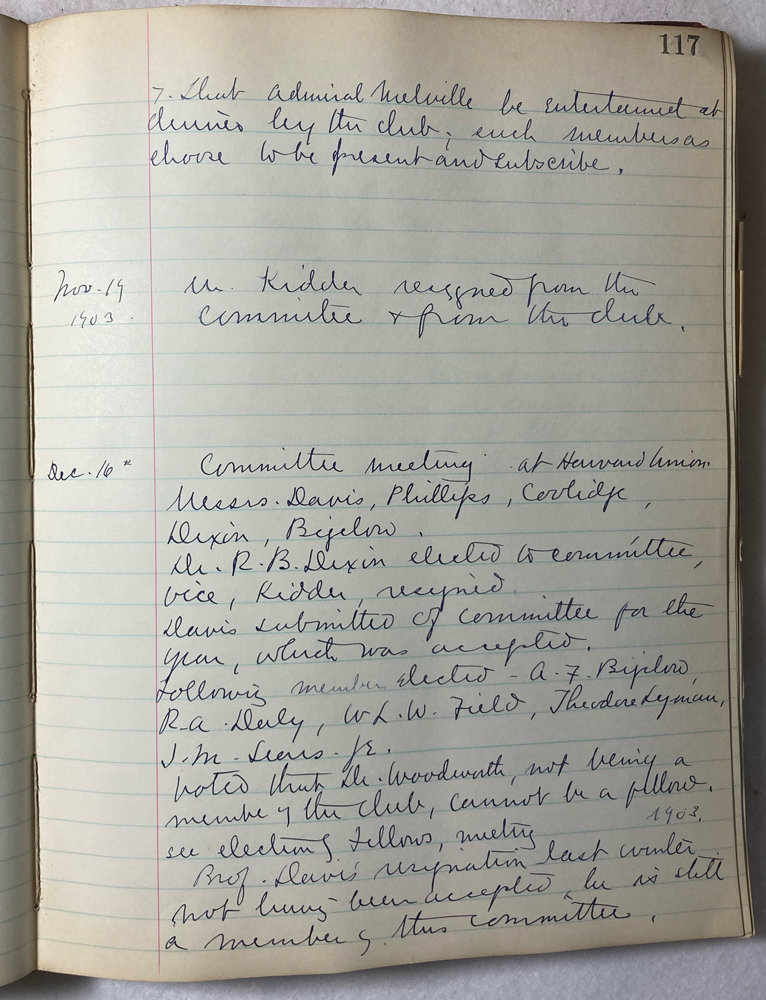 117
7. That Admiral Melville be entertained at
dinner by the club; such members as
choose to be present and subscribe.
Nov. 19
1903.
Mr. Kidder resigned from the
committee & from the club.
Dec. 16th
Committee meeting at Harvard Union.
Messrs. Davis, Phillips, Coolidge,
Dixon, Bigelow.
Dr. R. B. Dixon elected to committee,
vice, Kidder, resigned.
Davis submitted of committee for the
year, which was accepted.
Following members elected - A. F. Bigelow,
R. A. Daly, W. L. W. Field, Theodore Lyman,
J. M. Sears. Jr.
Voted that Dr. Woodworth, not being a
member of the club, cannot be a fellow.
see election of Fellows, meeting 1903.
Prof. Davis' resignation last winter
not having been accepted, he is still
a member of this committee.